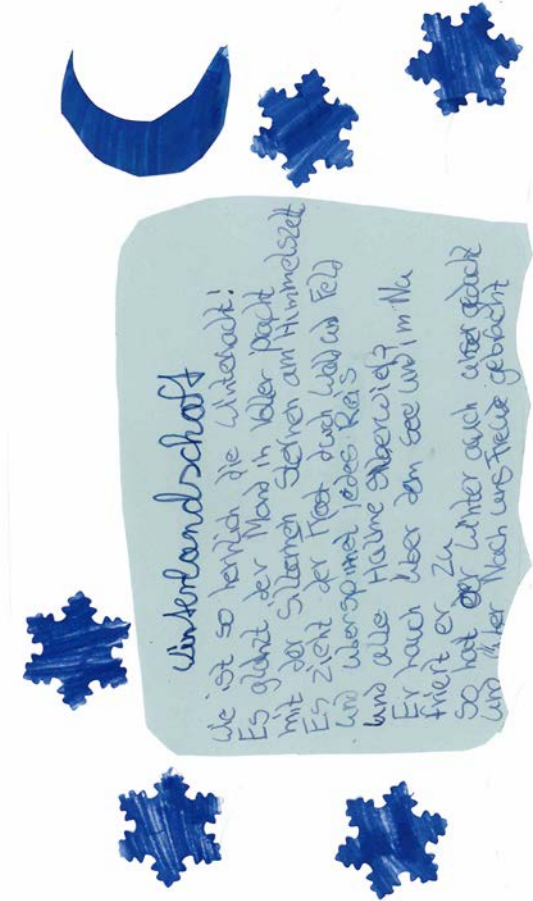 Winterlandschaft
Wie ist so herrlich die Winternacht!
Es glänzt der Mond in voller Pracht
mit der silbernen Sternen am Himmelszelt
Es zieht der Frost durch Wald und Feld
und überspinnet jedes Reis
und alle Halme silberweiß
Er hauch über dem See und im Nu
friert er zu
So hat der Winter auch unser gedacht
und über Nach uns Freude gebracht